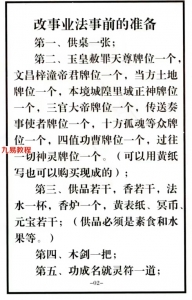 改事业法事前的准备
第一、供桌一张；
第二、玉皇赦罪天尊牌位一个，
文昌梓潼帝君牌位一个，当方土地
牌位一个，本境城隍里域正神牌位
一个，三官大帝牌位一个，传送奏
事使者牌位一个，十方孤魂等众牌
位一个，四值功曹牌位一个，过往
一切神灵牌位一个。（可以用黄纸
写也可以购买现成的）；
第三、供品若干，香若干，法
水一杯，香炉一个，黄表纸、冥币、
元宝若干；（供品必须是素食和水
果等。）
第四、木剑一把；
第五、功成名就灵符一道；
-02-
九易教程